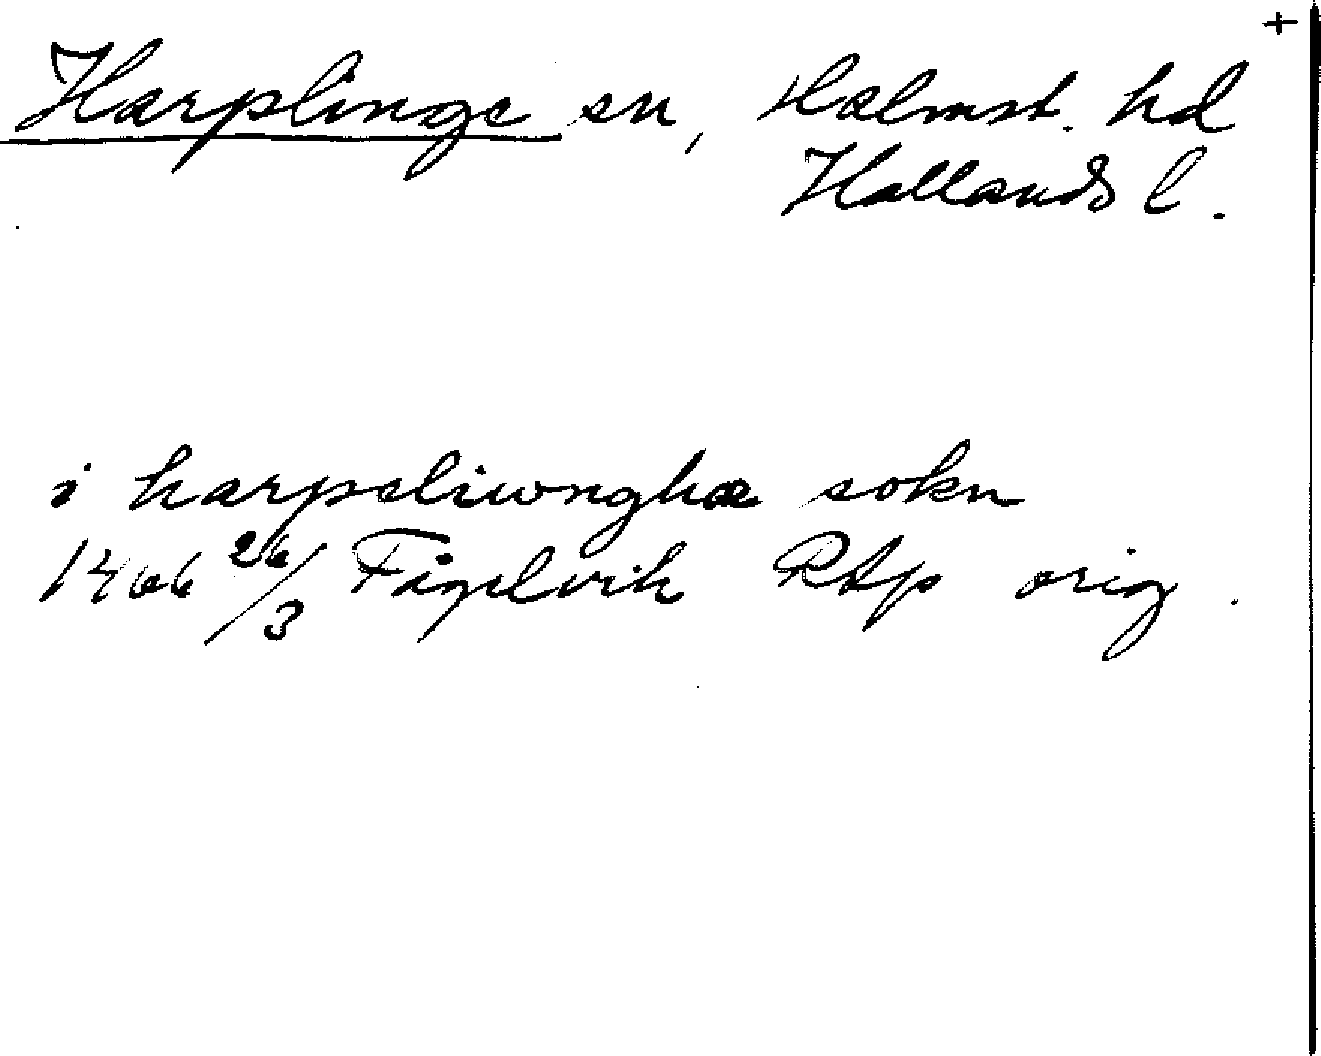 +
Harplinge sn, Halmst. hd
Hallands l.
i harpeliwnghæ sokn
1466 26/3 Fågelvik RAp orig.